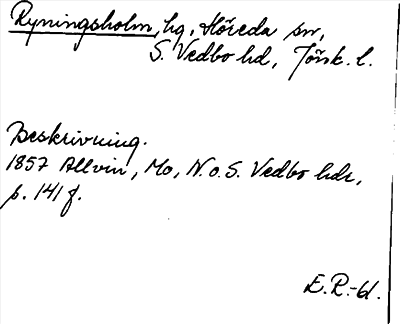 Ryningsholm, hg, Höreda sn,
S. Vedbo hd, Jönk. l.
Beskrivning.
1857 Allvin, Mo, N. o. S. Vedbo hdr,
s. 141 f.
E.R.-61.